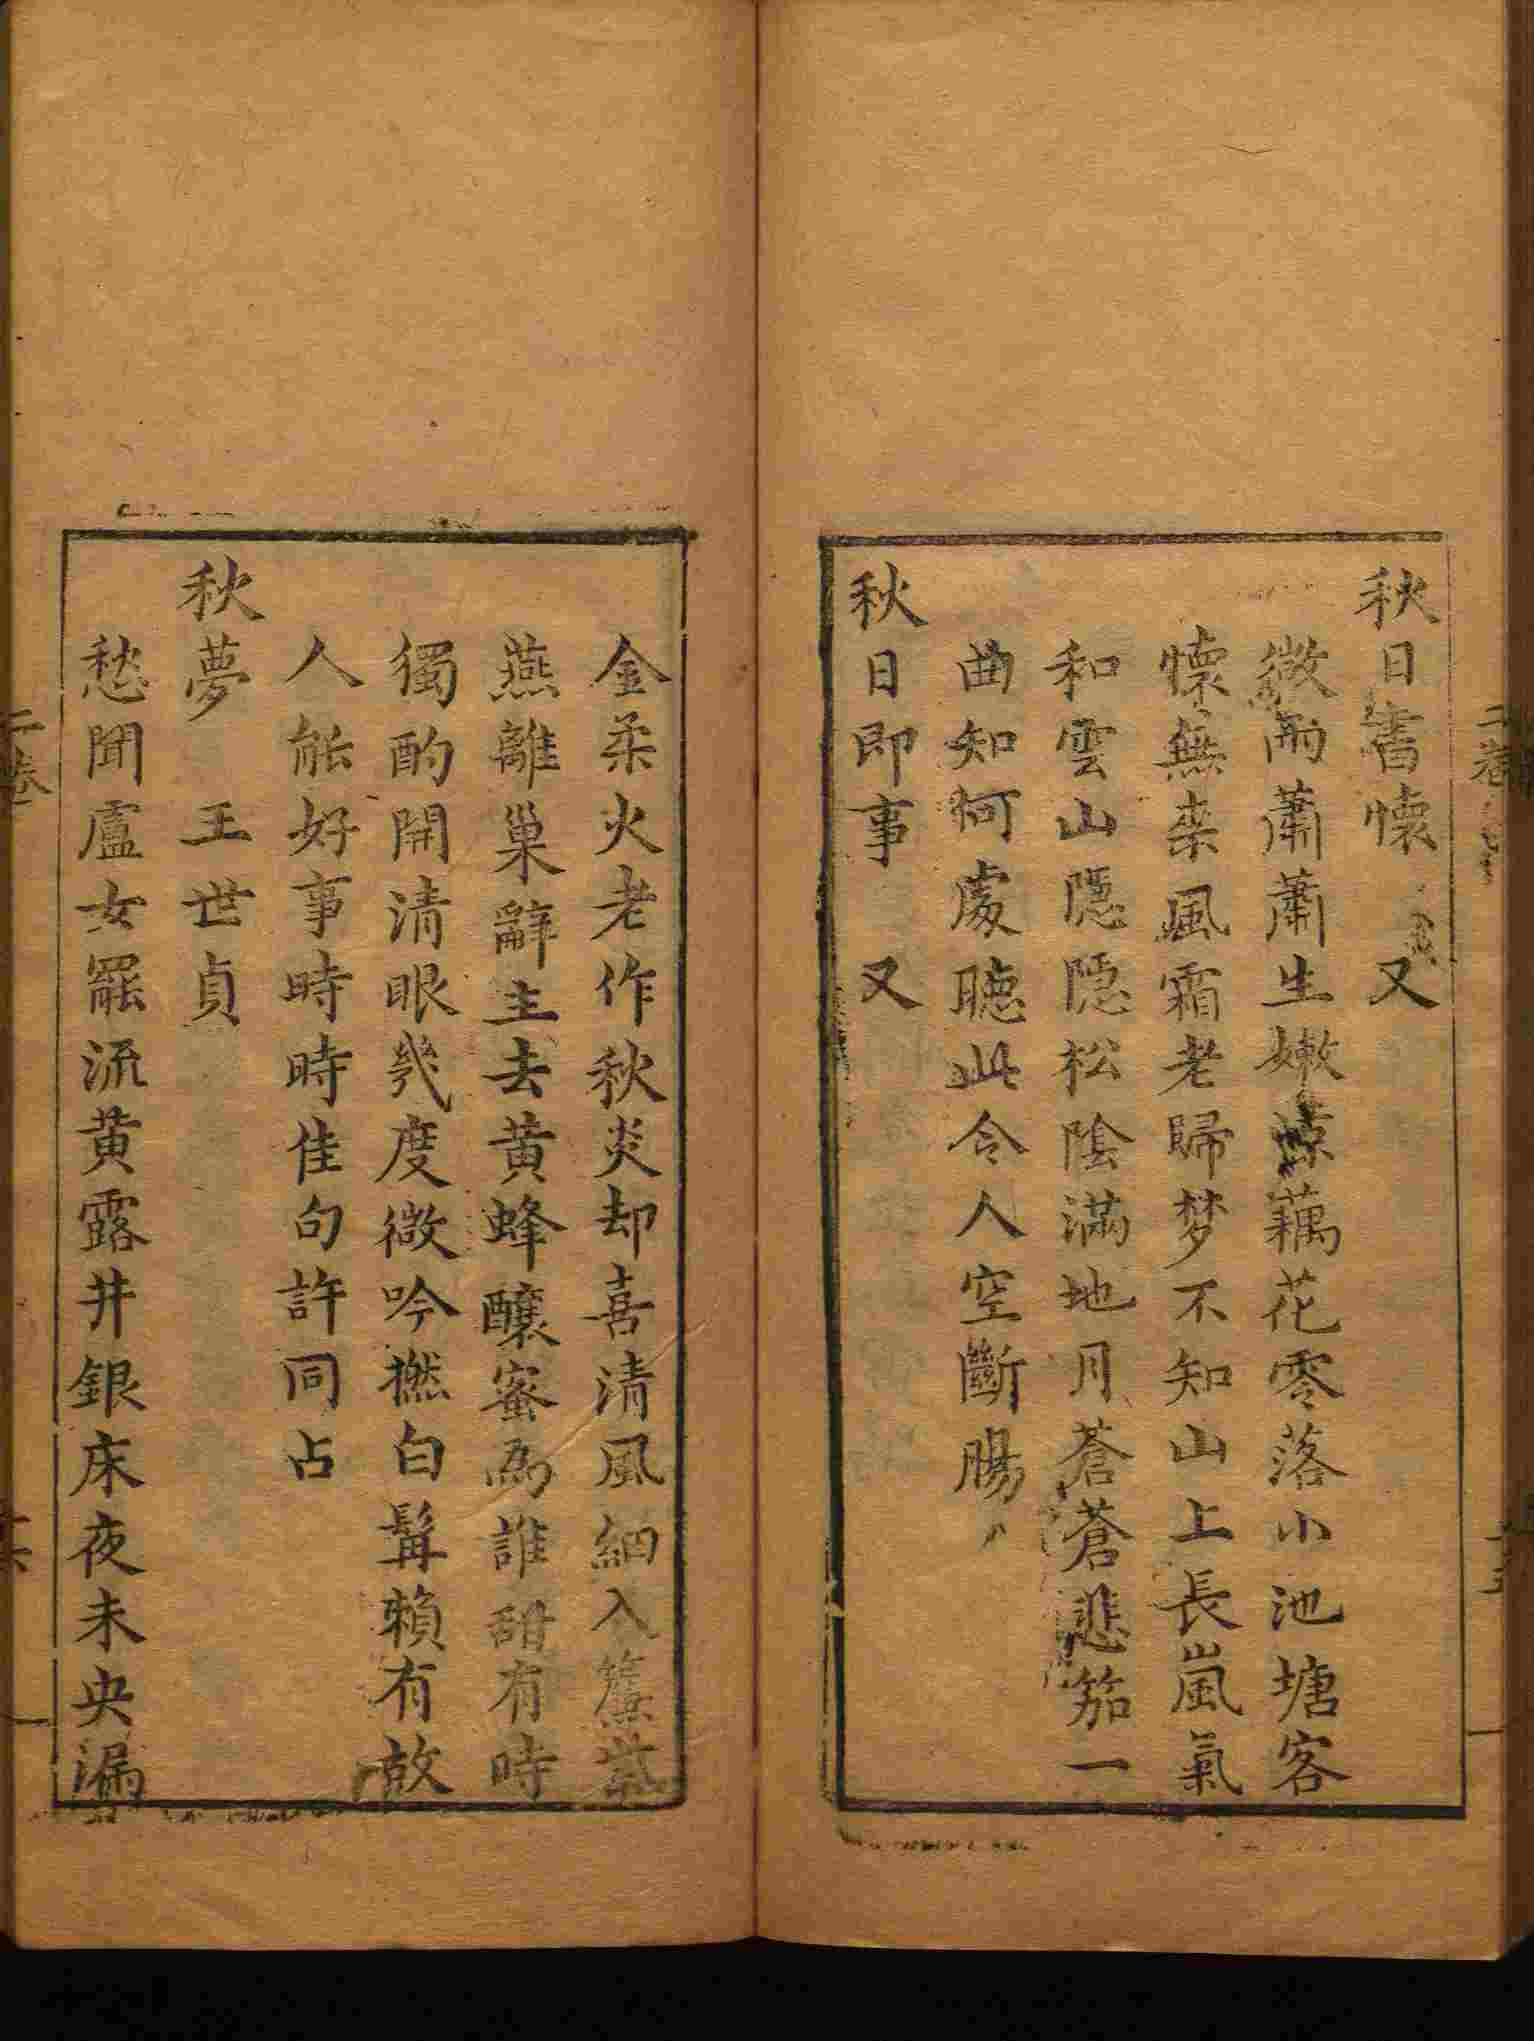 秋日書懷　又
微雨蕭蕭生嫩涼藕花零落小池塘客
懷無柰風霜老歸梦不知山上長嵐氣
和雲山隱隱松陰滿地月蒼蒼悲笳一
曲知何處聽此令人空斷腸
秋日即事　又
金柔火老作秋炎却喜清風細入簾紫
燕離巢辭主去黃蜂釀蜜為誰甜有時
獨酌開清眼幾度微吟撚白髯賴有故
人能好事時時佳句許同占
秋夢　王世貞
愁聞盧女罷流黃露井銀床夜未央漏
二卷